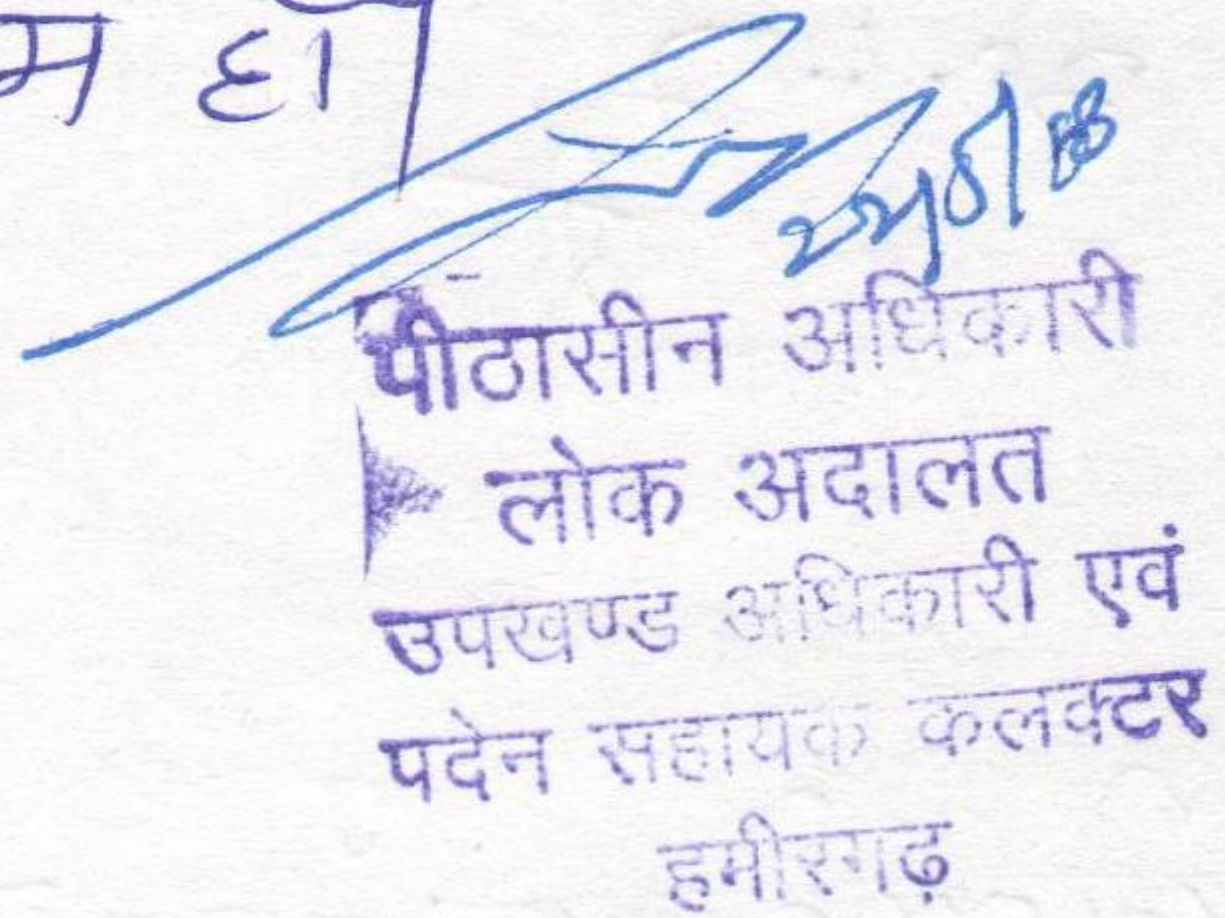 म हो।
पीठासीन अधिकारी
लोक अदालत
उपखण्ड अधिकारी एवं
पदेन सहायक कलक्टर
हमीरगढ़